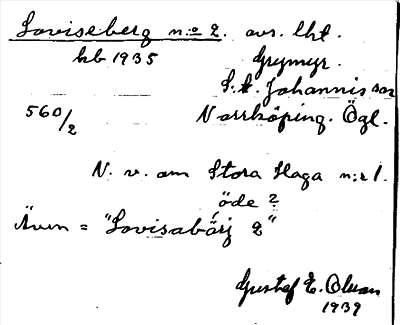 Loviseberg n:o 2. avs. lht.
kb 1935 Grymyr.
S:t. Johannis sn
560/2 Norrköping. Ögl.
N. v. om Stora Haga n:r 1.
öde ?
Även = "Lovisabärj 2"
Gustaf E. Olsson
1939